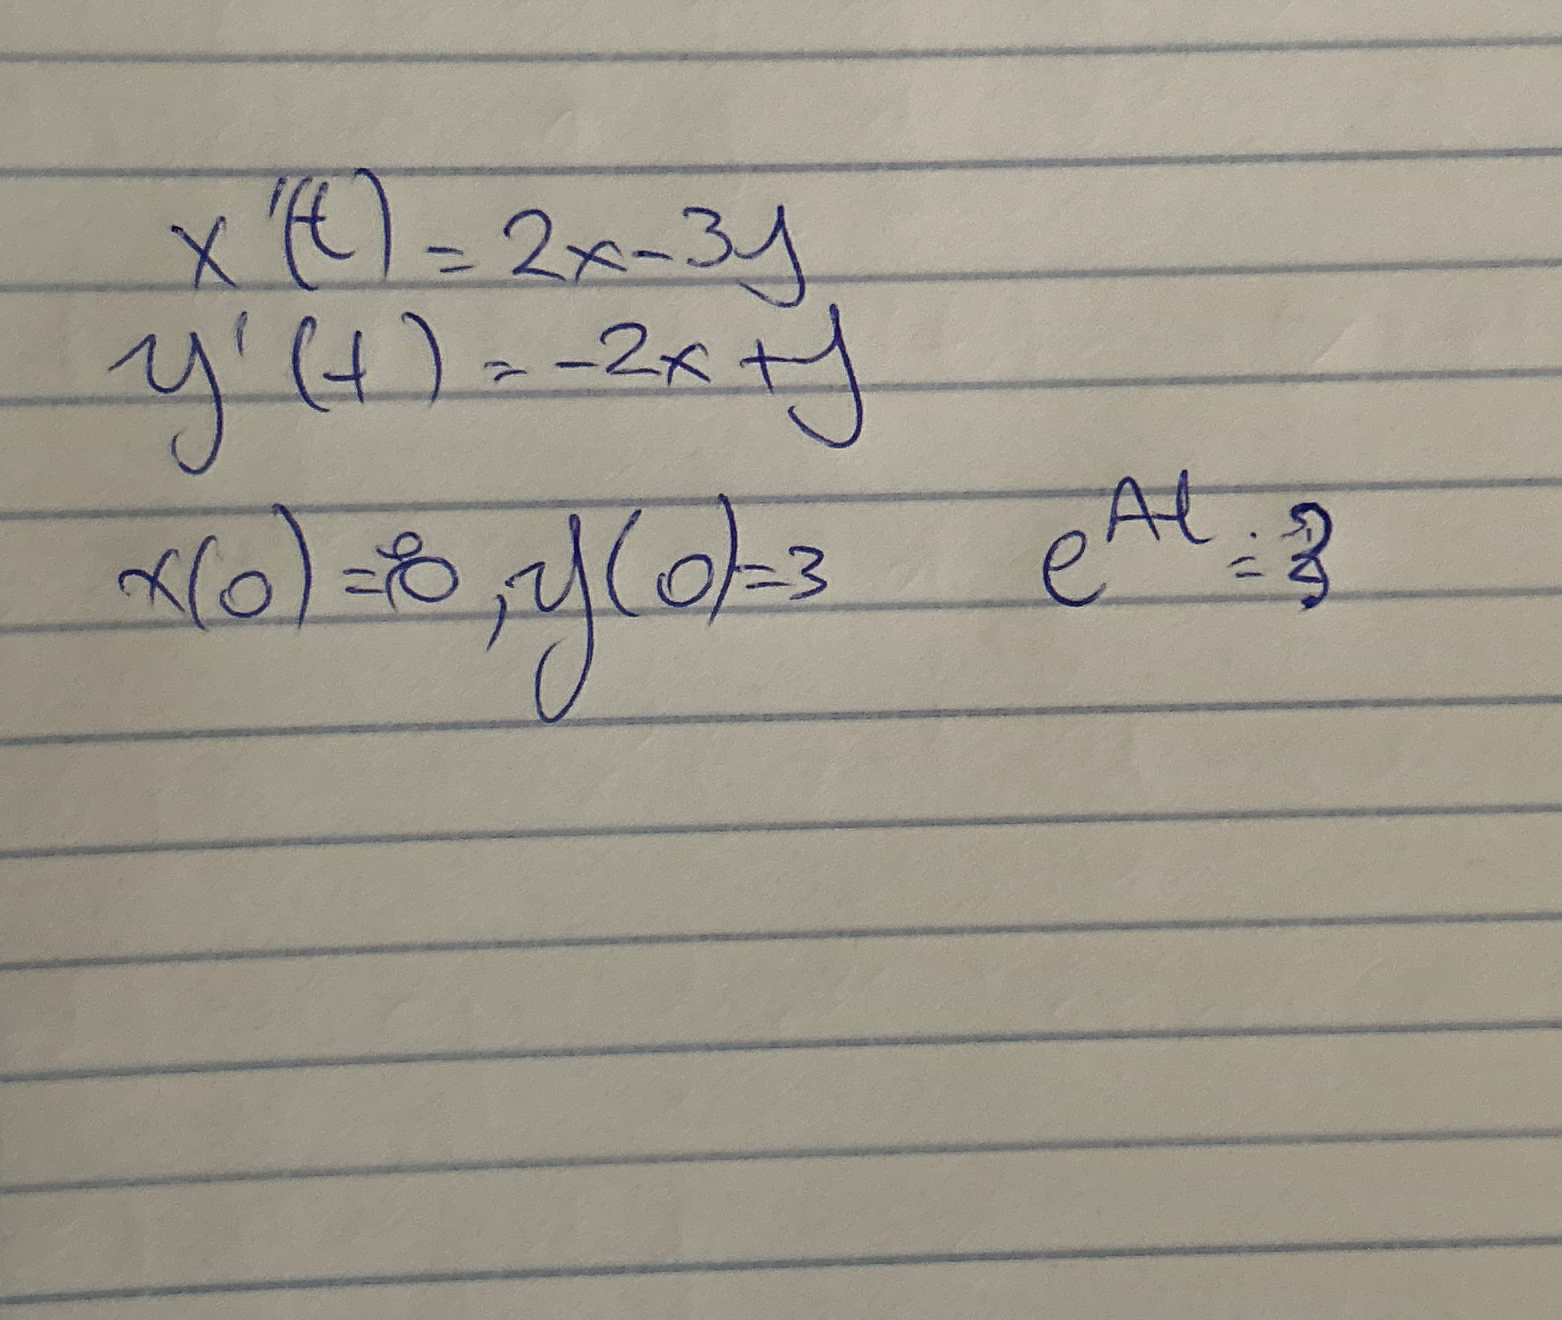 x'(t) = 2x-3y
y'(t) = -2x+y
x(0)=8, y(0)=3 e^At =